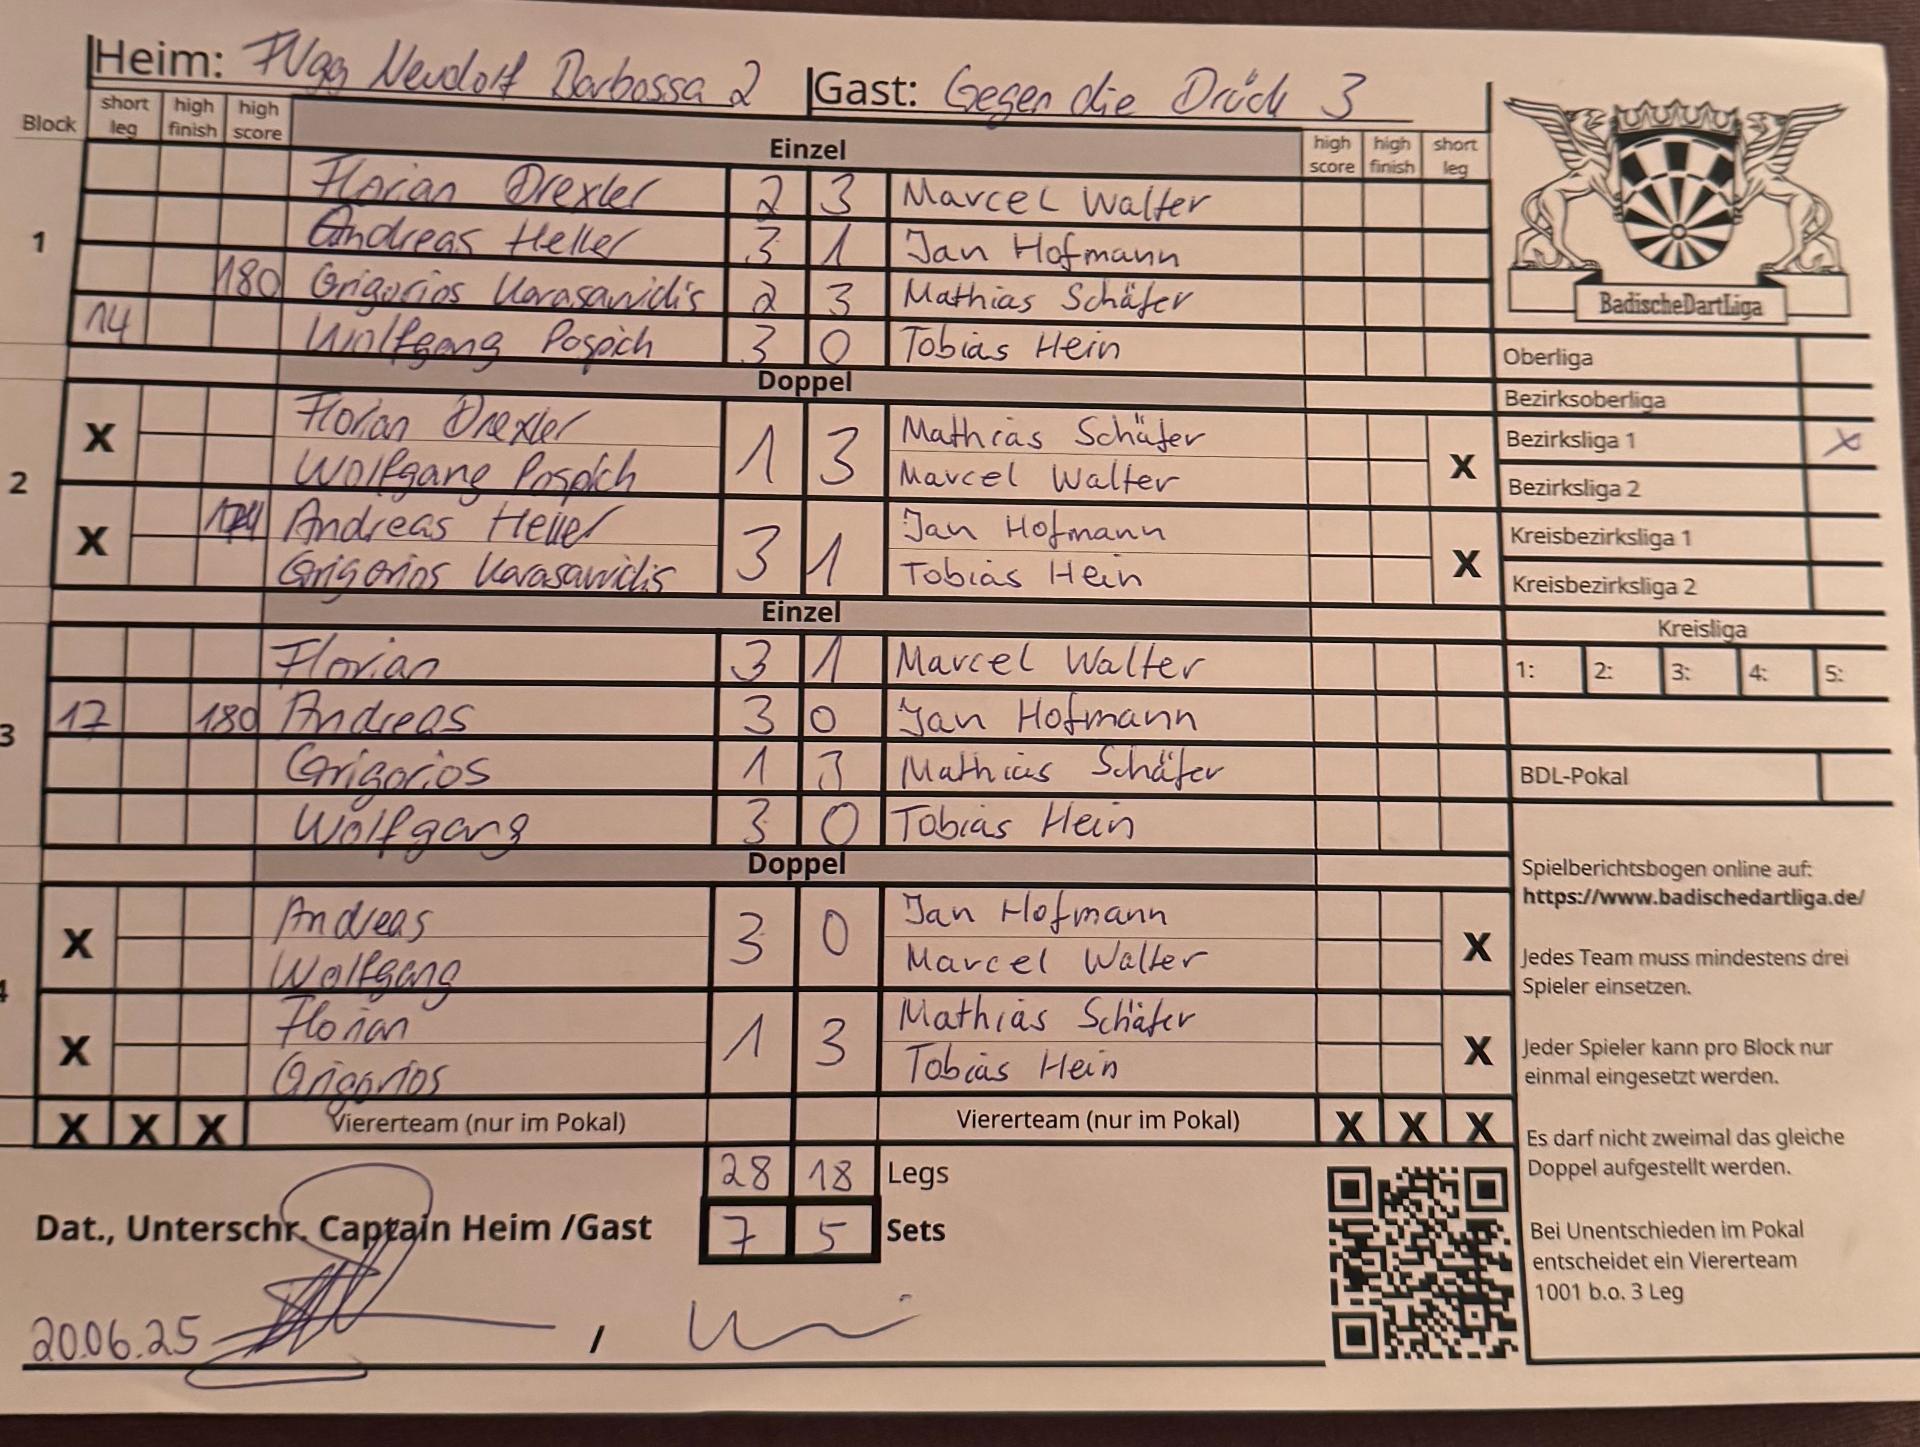 Heim: FVgg Neudorf Barbossa 2 Gast: Gegen die Drück 3
Block short leg high finish high score Einzel high score high finish short leg
Florian Drexler 2 3 Marcel Walter
1 Andreas Heller 3 1 Jan Hofmann
180 Grigorios Karasavvidis 2 3 Mathias Schäfer
14 Wolfgang Pospich 3 0 Tobias Hein
Doppel
X Florian Drexler 1 3 Mathias Schäfer X
Wolfgang Pospich Marcel Walter
2
X Andreas Heller 3 1 Jan Hofmann X
Grigorios Karasavvidis Tobias Hein
Einzel
Florian 3 1 Marcel Walter
3 17 180 Andreas 3 0 Jan Hofmann
Grigorios 1 3 Mathias Schäfer
Wolfgang 3 0 Tobias Hein
Doppel
X Andreas 3 0 Jan Hofmann X
Wolfgang Marcel Walter
4
X Florian 1 3 Mathias Schäfer X
Grigorios Tobias Hein
X X X Viererteam (nur im Pokal) Viererteam (nur im Pokal) X X X
28 18 Legs
Dat., Unterschr. Captain Heim /Gast 7 5 Sets
20.06.25 /
BadischeDartLiga
Oberliga
Bezirksoberliga
Bezirksliga 1 X
Bezirksliga 2
Kreisbezirksliga 1
Kreisbezirksliga 2
Kreisliga
1: 2: 3: 4: 5:
BDL-Pokal
Spielberichtsbogen online auf:
https://www.badischedartliga.de/
Jedes Team muss mindestens drei
Spieler einsetzen.
Jeder Spieler kann pro Block nur
einmal eingesetzt werden.
Es darf nicht zweimal das gleiche
Doppel aufgestellt werden.
Bei Unentschieden im Pokal
entscheidet ein Viererteam
1001 b.o. 3 Leg